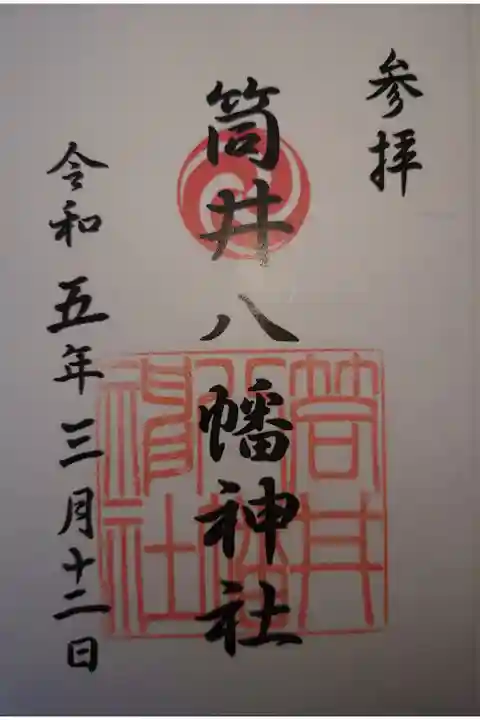 参拝
筒井八幡神社
令和五年三月十二日
筒井
八幡
神社